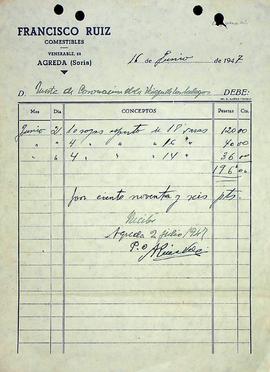 FRANCISCO RUIZ
COMESTIBLES
VENERABLE,
AGREDA (Soria)
16 de Junio de 1947
D. de Coronación de la Virgen de los Milagros DEBE:
Mes Día CONCEPTOS Pesetas Cts.
Junio 2 10 sogas esparto de 18 varas 120 00
" " 4 " " " 16 " 40 00
" " 4 " " " 14 " 36 00
196 00
son ciento noventa y seis pts.
Recibí
Agreda 2 Julio 1947
P.O.